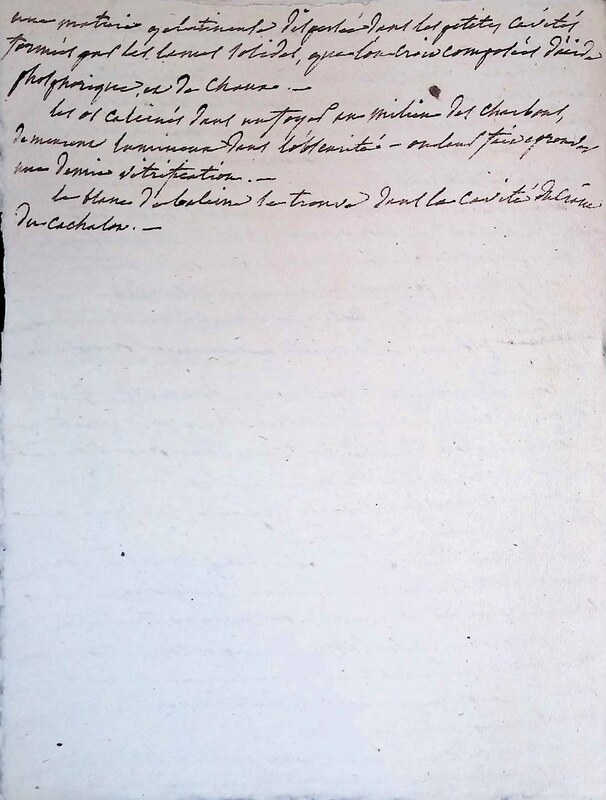 une matiere gelatineuse dispersée dans les petites cavités
formées par les lames solides, que l'on croit composées d'acide
phosphorique et de chaux. —
les os calcinés dans un foyer au milieu des charbons,
demeurent lumineux dans l'obscurité — on leur fait eprouver
une demie vitrification. —
le blanc de baleine se trouve dans la cavité du crâne
du cachalon. —